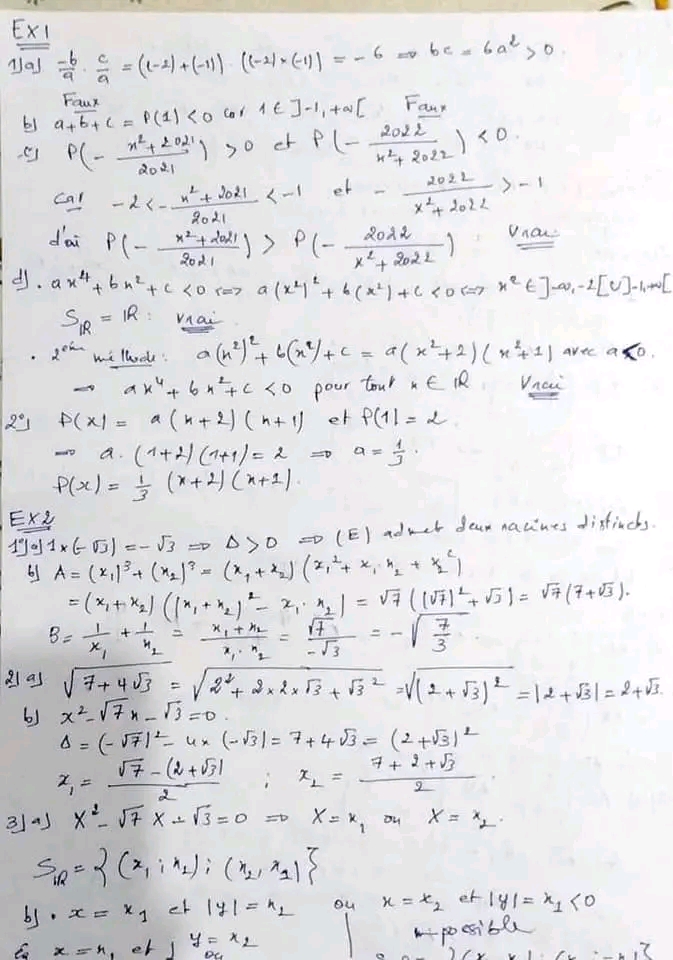 EX1
1)a) -b/a . c/a = ((-2)+(-1)) . ((-2)x(-1)) = -6 ⇒ bc = 6a² > 0.
Faux
b) a+b+c = P(1) < 0 car 1 ∈ ]-1, +∞[ Faux
c) P(- (x²+2021)/2021) > 0 et P(- 2022/(x²+2022)) < 0.
car -2 < - (x²+2021)/2021 < -1 et - 2022/(x²+2022) > -1
d'où P(- (x²+2021)/2021) > P(- 2022/(x²+2022)) Vrai
d) . ax⁴+bx²+c < 0 ⟺ a(x²)²+b(x²)+c < 0 ⟺ x² ∈ ]-∞,-2[ U ]-1,+∞[
S_IR = IR : Vrai
. 2ème méthode : a(x²)²+b(x²)+c = a(x²+2)(x²+1) avec a<0.
⇒ ax⁴+bx²+c < 0 pour tout x ∈ IR. Vrai
2°) P(x) = a(x+2)(x+1) et P(1) = 2
⇒ a.(1+2)(1+1) = 2 ⇒ a = 1/3.
P(x) = 1/3 (x+2)(x+1).
EX2
1°)a) 1x(-√3) = -√3 ⇒ Δ > 0 ⇒ (E) admet deux racines distincts.
b) A = (x₁)³+(x₂)³ = (x₁+x₂)(x₁²+x₁.x₂+x₂²)
= (x₁+x₂)((x₁+x₂)² - x₁.x₂) = √7((√7)²+√3) = √7(7+√3).
B = 1/x₁ + 1/x₂ = (x₁+x₂)/(x₁.x₂) = √7/-√3 = -√(7/3)
2)a) √(7+4√3) = √(2²+2x2x√3+√3²) = √((2+√3)²) = |2+√3| = 2+√3.
b) x²-√7x-√3 = 0.
Δ = (-√7)² - 4x(-√3) = 7+4√3 = (2+√3)²
x₁ = (√7-(2+√3))/2 ; x₂ = (7+2+√3)/2
3)a) X²-√7X-√3 = 0 ⇒ X = x₁ ou X = x₂.
S_IR = {(x₁;x₂);(x₂,x₁)}
b) . x = x₁ et |y| = x₂ ou x = x₂ et |y| = x₁ < 0
impossible
x = x₁ et { y = x₂
ou